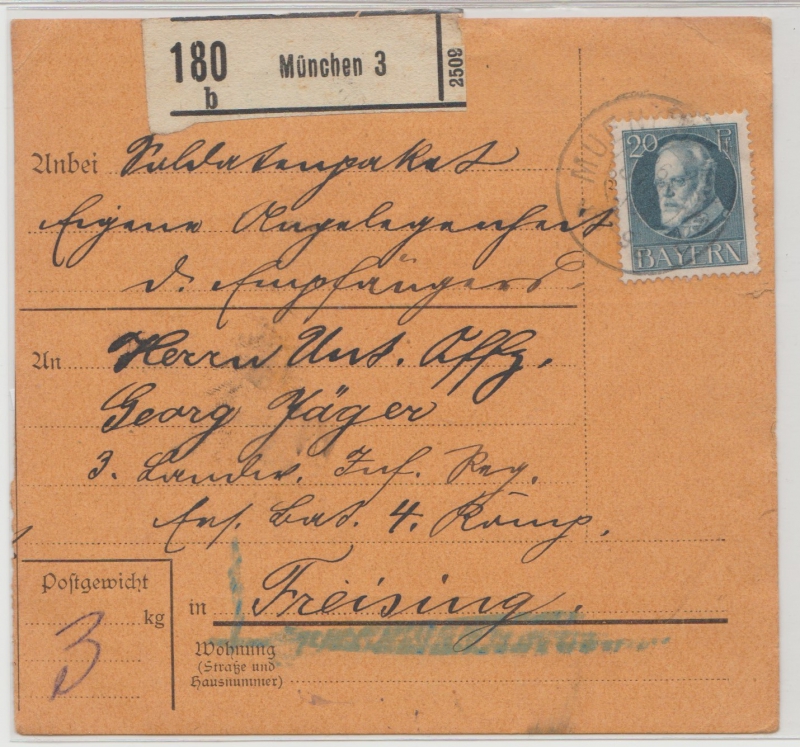 180 München 3 2509
b
20 Pf
BAYERN
MÜ
Anbei Soldatenpaket
Eigene Angelegenheit
d. Empfängers
An Herrn Unt. Offz.
Georg Jäger
3. Landw. Inf. Reg.
Ers. Bat. 4. Komp.
Postgewicht
3 kg
in Freising.
Wohnung
(Straße und
Hausnummer)